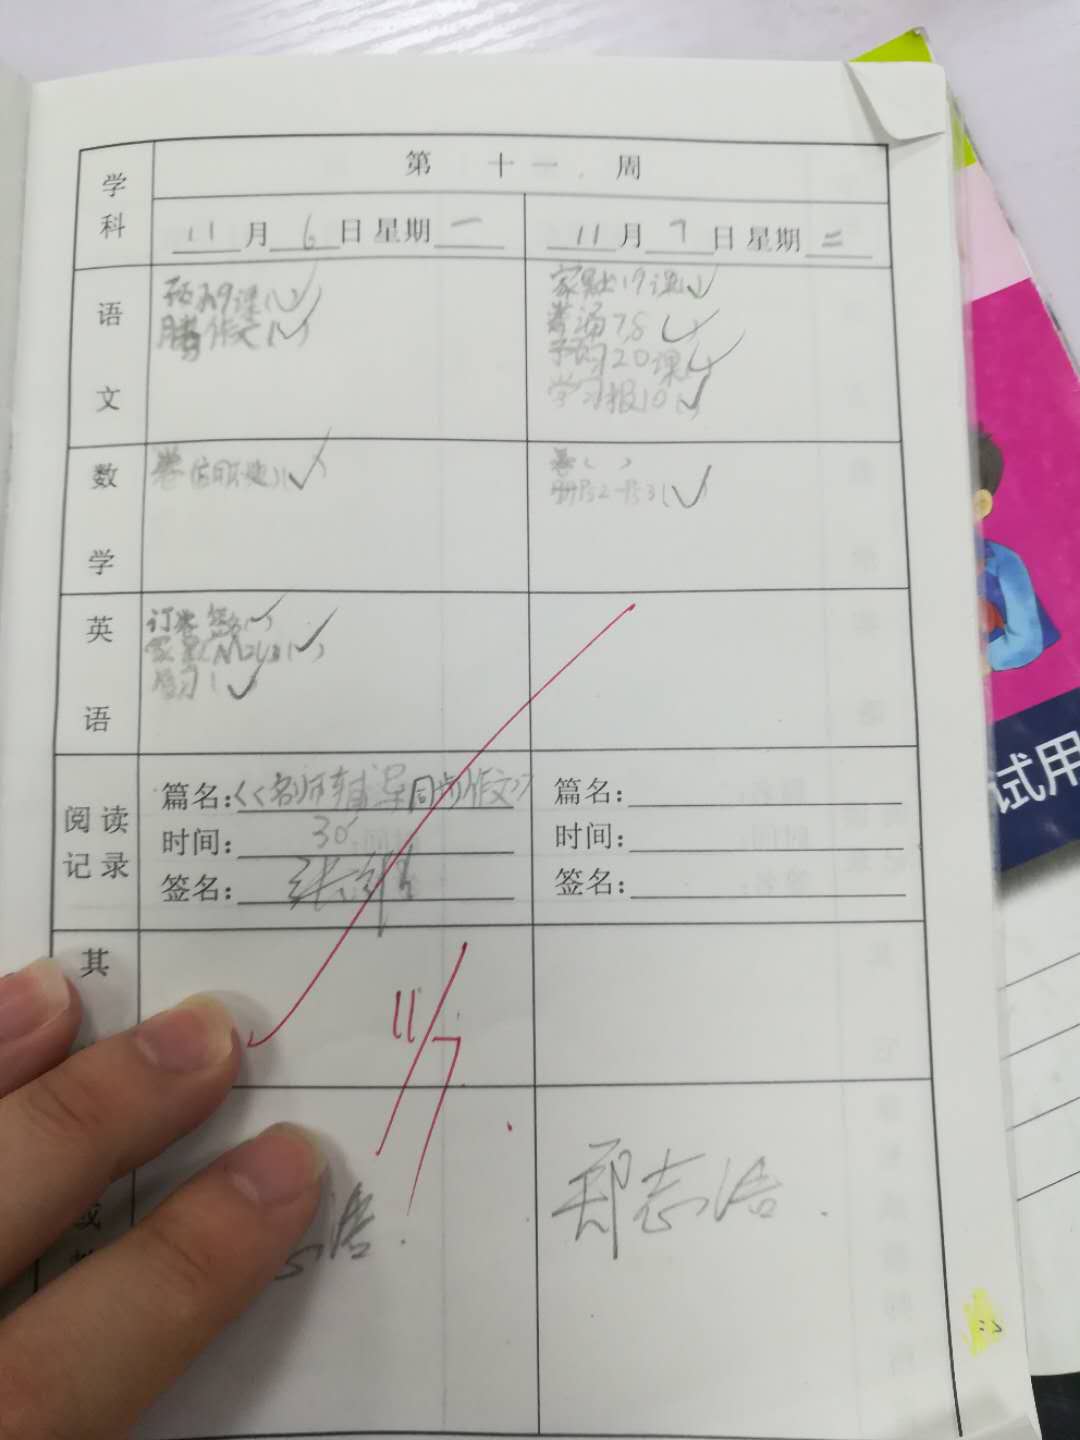 学科
第 十一 周
11月6日 星期一
11月7日 星期二
语文
预习19课(✓)
腾作文(✓)
家默19课(✓)
背诵7,8(✓)
予习20课(✓)
学习报10(✓)
数学
卷(✓)
卷( )
册P52-P53(✓)
英语
订卷 签名(✓)
家默M2U3(✓)
(✓)
阅读记录
篇名:《名师辅导同步作文》
时间: 30'
签名:
篇名:
时间:
签名:
其
11/7
或
浩.
郑志浩.
试用